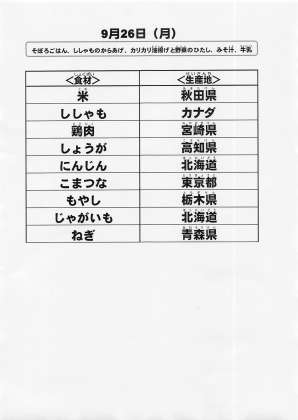 9月26日（月）
そぼろごはん、ししゃものからあげ、カリカリ油揚げと野菜のひたし、みそ汁、牛乳
＜食材＞ ＜生産地＞
米 秋田県
ししゃも カナダ
鶏肉 宮崎県
しょうが 高知県
にんじん 北海道
こまつな 東京都
もやし 栃木県
じゃがいも 北海道
ねぎ 青森県